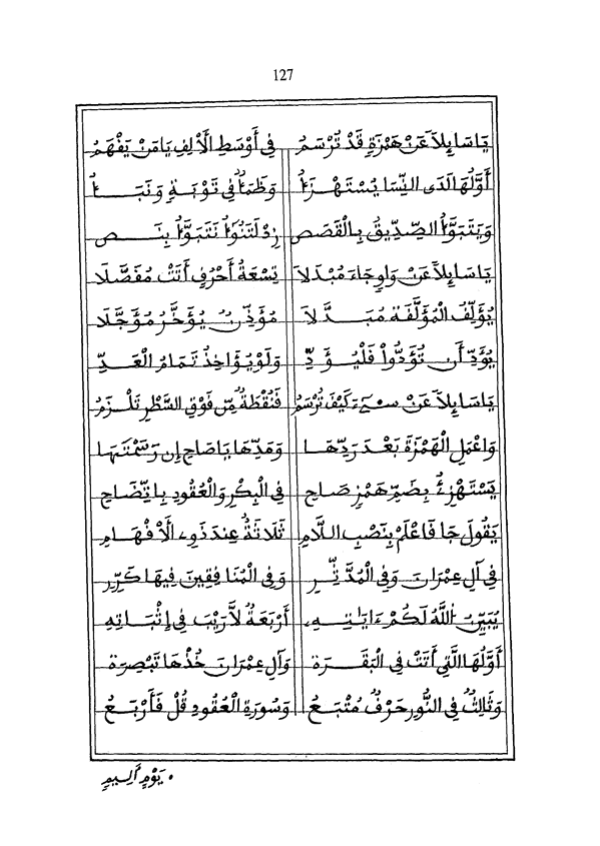 127
يَاسَايِلاً عَنْ هَمْزَةٍ قَدْ تُرْسَمُ فِي أَوْسَطِ الْأَلِفِ يَامَنْ يَفْهَمُ
أَوَّلُهَا لَدَى النِّسَا يُسْتَهْزَأُ وَظَمَأٌ فِي تَوْبَةٍ وَنَبَأُ
وَيَتَبَوَّأُ الصِّدِّيقُ بِالْقَصَصِ زِدْ لَتَنُوأُ نَتَبَوَّأُ بِنَصِ
يَاسَايِلاً عَنْ وَاوٍ جَاءَ مُبْدَلاَ تِسْعَةُ أَحْرُفٍ أَتَتْ مُفَصَّلَا
يُؤَلِّفُ الْمُؤَلَّفَةُ مُبَدَّلاَ مُؤَذِّنٌ يُؤَخَّرُ مُؤَجَّلَا
يُؤَدِّ أَن تُؤَدُّواْ فَلْيُؤَدِّ وَلَوْ يُؤَاخِذُ تَمَامُ الْعَدِّ
يَاسَايِلاً عَنْ سِيءَ كَيْفَ تُرْسَمُ فَنُقْطَةٌ مِّن فَوْقِ السَّطْرِ تَلْزَمُ
وَاعْمَلِ الْهَمْزَةَ بَعْدَ رَدِّهَا وَمَدِّهَا يَاصَاحِ إِن رَسَمْتَهَا
يَسْتَهْزِئُ بِضَمِّ هَمْزٍ صَاحِ فِي الْبِكْرِ وَالْعُقُودِ بِاتِّضَاحِ
يَقُولَ جَا فَاعْلَمْ بِنَصْبِ اللَّامِ ثَلَاثَةٌ عِندَ ذَوِي الْأَفْهَامِ
فِي آلِ عِمْرَانَ وَفِي الْمُدَّثِّرِ وَفِي الْمُنَافِقِينَ فِيهَا كَرِّرِ
يُبَيِّنُ اللَّهُ لَكُمْ ءَايَٰتِهِ أَرْبَعَةٌ لاَّ رَيْبَ فِي إِثْبَاتِهِ
أَوَّلُهَا الَّتِي أَتَتْ فِي الْبَقَرَةْ وَآلِ عِمْرَانَ خُذْهَا تَبْصِرَةْ
وَثَالِثٌ فِي النُّورِ حَرْفٌ مُتْبَعُ وَسُورَةِ الْعُقُودِ قُلْ فَأَرْبَعُ
• يَوْمٍ أَلِيمٍ